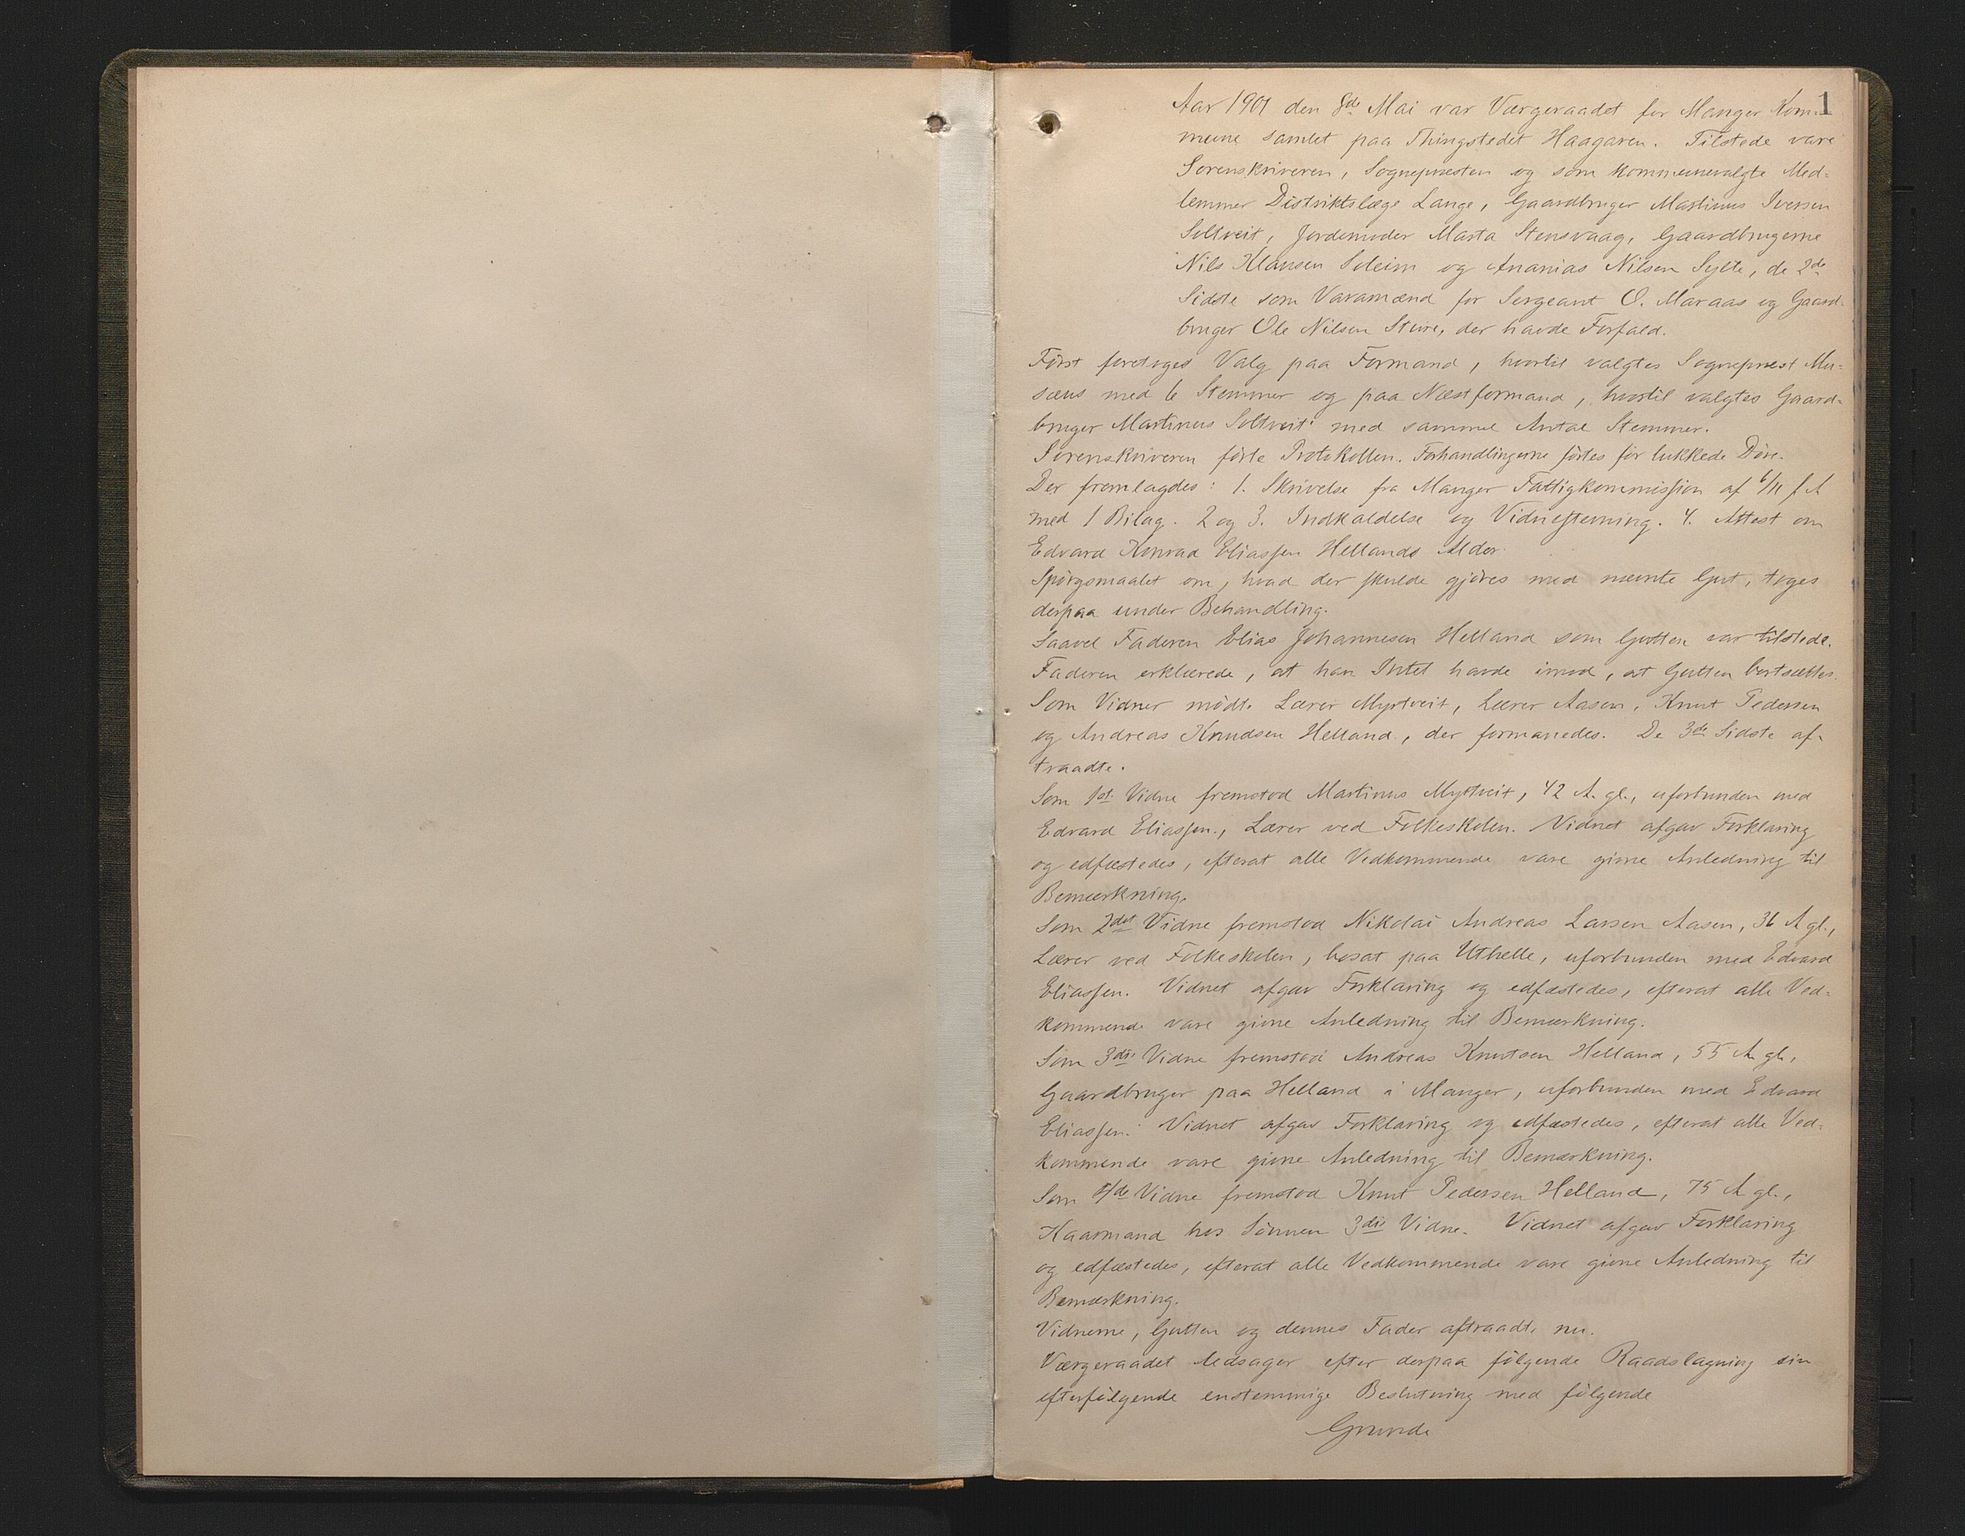 1
Aar 1901 den 8de Mai var Værgeraadet for Manger Kom-
mune samlet paa Thingstedet Haagaren. Tilstede vare
Sorenskriveren, Sognepresten og som kommunevalgte Med-
lemmer Distriktslæge Lange, Gaardbruger Martinus Iversen
Soltveit, Jordemoder Marta Stensvaag, Gaardbrugerne
Nils Klausen Soleim og Ananias Nilsen Sylte, de 2de
Sidste som Varamænd for Sergeant O. Maraas og Gaard-
bruger Ole Nilsen Sture, der havde Forfald.
Først foretoges Valg paa Formand, hvortil valgtes Sogneprest Mu-
sæus med 6 Stemmer og paa Næstformand, hvortil valgtes Gaard-
bruger Martinus Soltveit med samme Antal Stemmer.
Sorenskriveren førte Protokollen. Forhandlingerne førtes for lukkede Døre.
Der fremlagdes: 1. Skrivelse fra Manger Fattigkommission af 6/11 f A
med 1 Bilag. 2 og 3. Indkaldelse og Vidnestevning. 4. Attest om
Edvard Konrad Eliassen Hellands Alder.
Spørgsmaalet om, hvad der skulde gjøres med nævnte Gut, toges
derpaa under Behandling.
Saavel Faderen Elias Johannesen Helland som Gutten var tilstede.
Faderen erklærede, at han Intet havde imod, at Gutten bortsættes.
Som Vidner mødte Lærer Myrtveit, Lærer Aasen, Knut Pedersen
og Andreas Knudsen Helland, der formanedes. De 3de Sidste af-
traadte.
Som 1st Vidne fremstod Martinus Myrtveit, 42 A. gl., uforbunden med
Edvard Eliassen, Lærer ved Folkeskolen. Vidnet afgav Forklaring
og edfæstedes, efterat alle Vedkommende vare givne Anledning til
Bemærkning.
Som 2det Vidne fremstod Nikolai Andreas Larsen Aasen, 36 A gl.,
Lærer ved Folkeskolen, bosat paa Uthelle, uforbunden med Edvard
Eliassen. Vidnet afgav Forklaring og edfæstedes, efterat alle Ved-
kommende vare givne Anledning til Bemærkning.
Som 3die Vidne fremstod Andreas Knutsen Helland, 55 A gl.,
Gaardbruger paa Helland i Manger, uforbunden med Edvard
Eliassen. Vidnet afgav Forklaring og edfæstedes, efterat alle Ved-
kommende vare givne Anledning til Bemærkning.
Som 4de Vidne fremstod Knut Pedersen Helland, 75 A gl.,
Kaarmand hos Sønnen 3die Vidne. Vidnet afgav Forklaring
og edfæstedes, efterat alle Vedkommende vare givne Anledning til
Bemærkning.
Vidnerne, Gutten og dennes Fader aftraadte nu.
Værgeraadet ledsager efter derpaa følgende Raadslagning sin
efterfølgende enstemmige Beslutning med følgende
Grunde